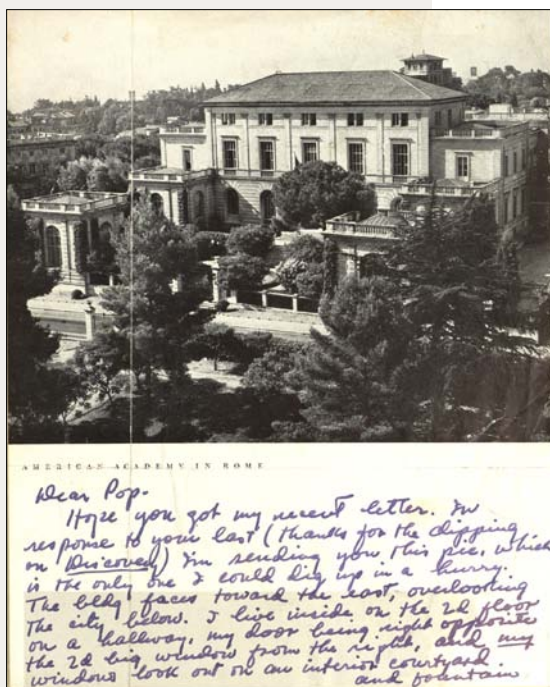 AMERICAN ACADEMY IN ROME
Dear Pop-
Hope you got my recent letter. In
response to your last (thanks for the clipping
on Discovery) I'm sending you this pic, which
is the only one I could dig up in a hurry.
The bldg faces toward the east, overlooking
the city below. I live inside on the 2d floor
on a hallway, my door being right opposite
the 2d big window from the right, and my
windows look out on an interior courtyard
and fountain